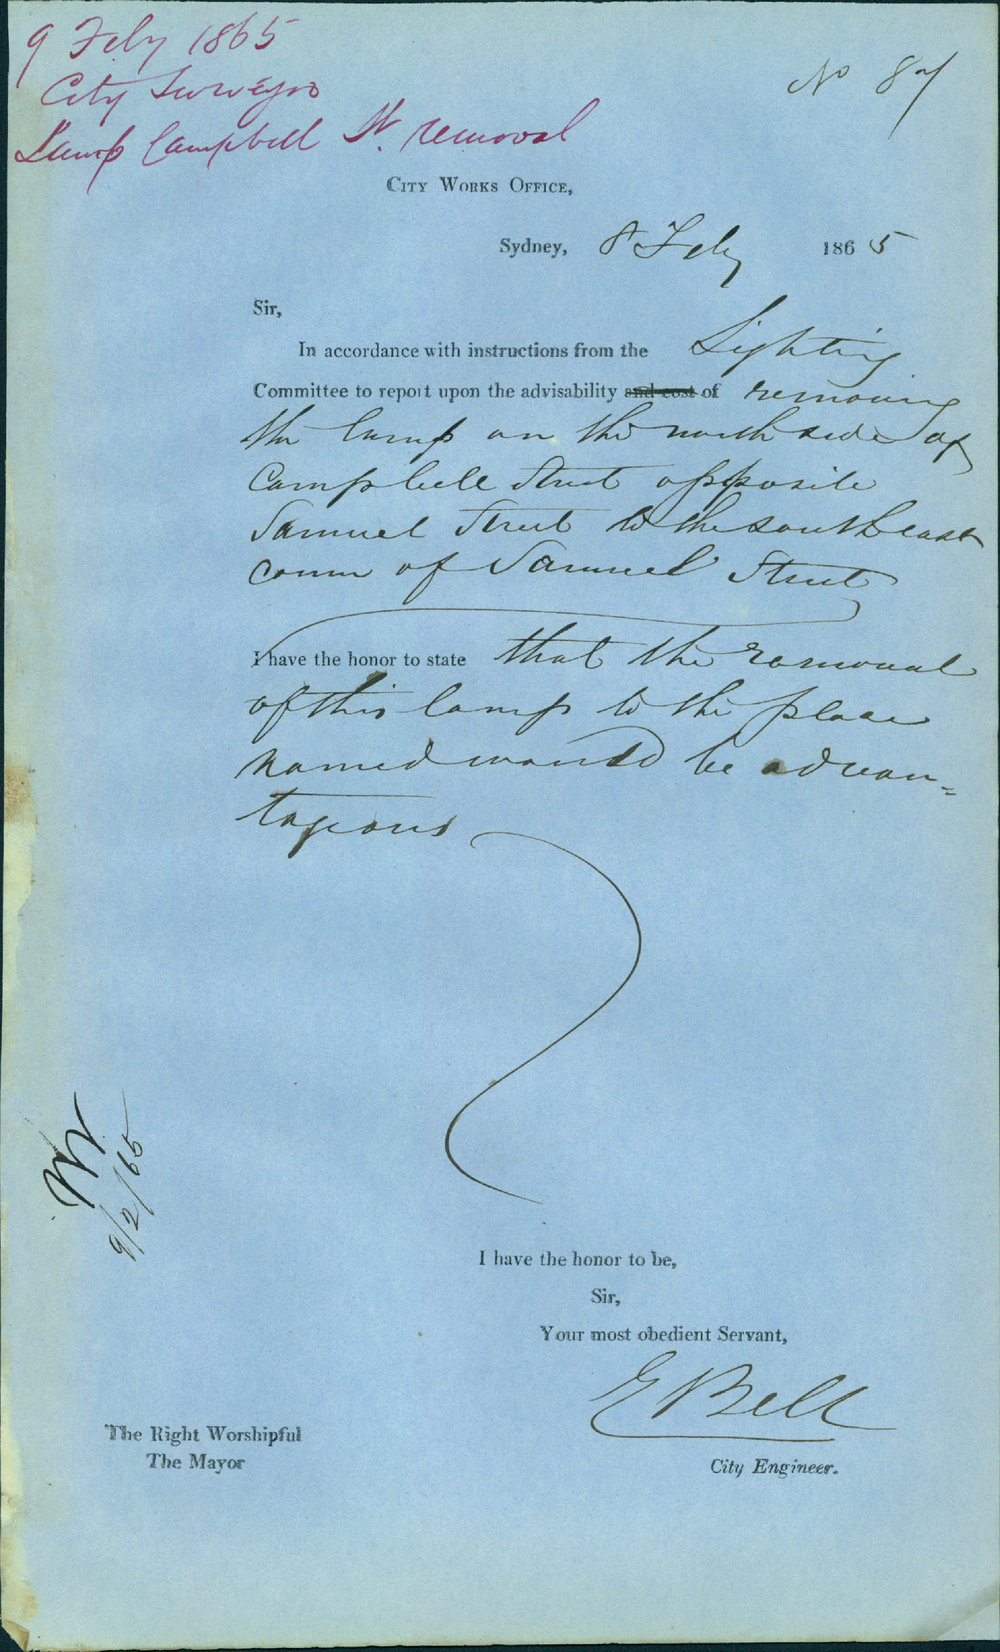 9 Feby 1865
City Surveyor
Lamp Campbell St. removal
No 87
City Works Office,
Sydney, 8 Feby 1865
Sir,
In accordance with instructions from the Lighting
Committee to report upon the advisability and cost of removing
the lamp on the north side of
Campbell Street opposite
Samuel Street to the south east
corner of Samuel Street
I have the honor to state that the removal
of this lamp to the place
named would be advan=
tageous
9/2/65
I have the honor to be,
Sir,
Your most obedient Servant,
E Bell
City Engineer.
The Right Worshipful
The Mayor